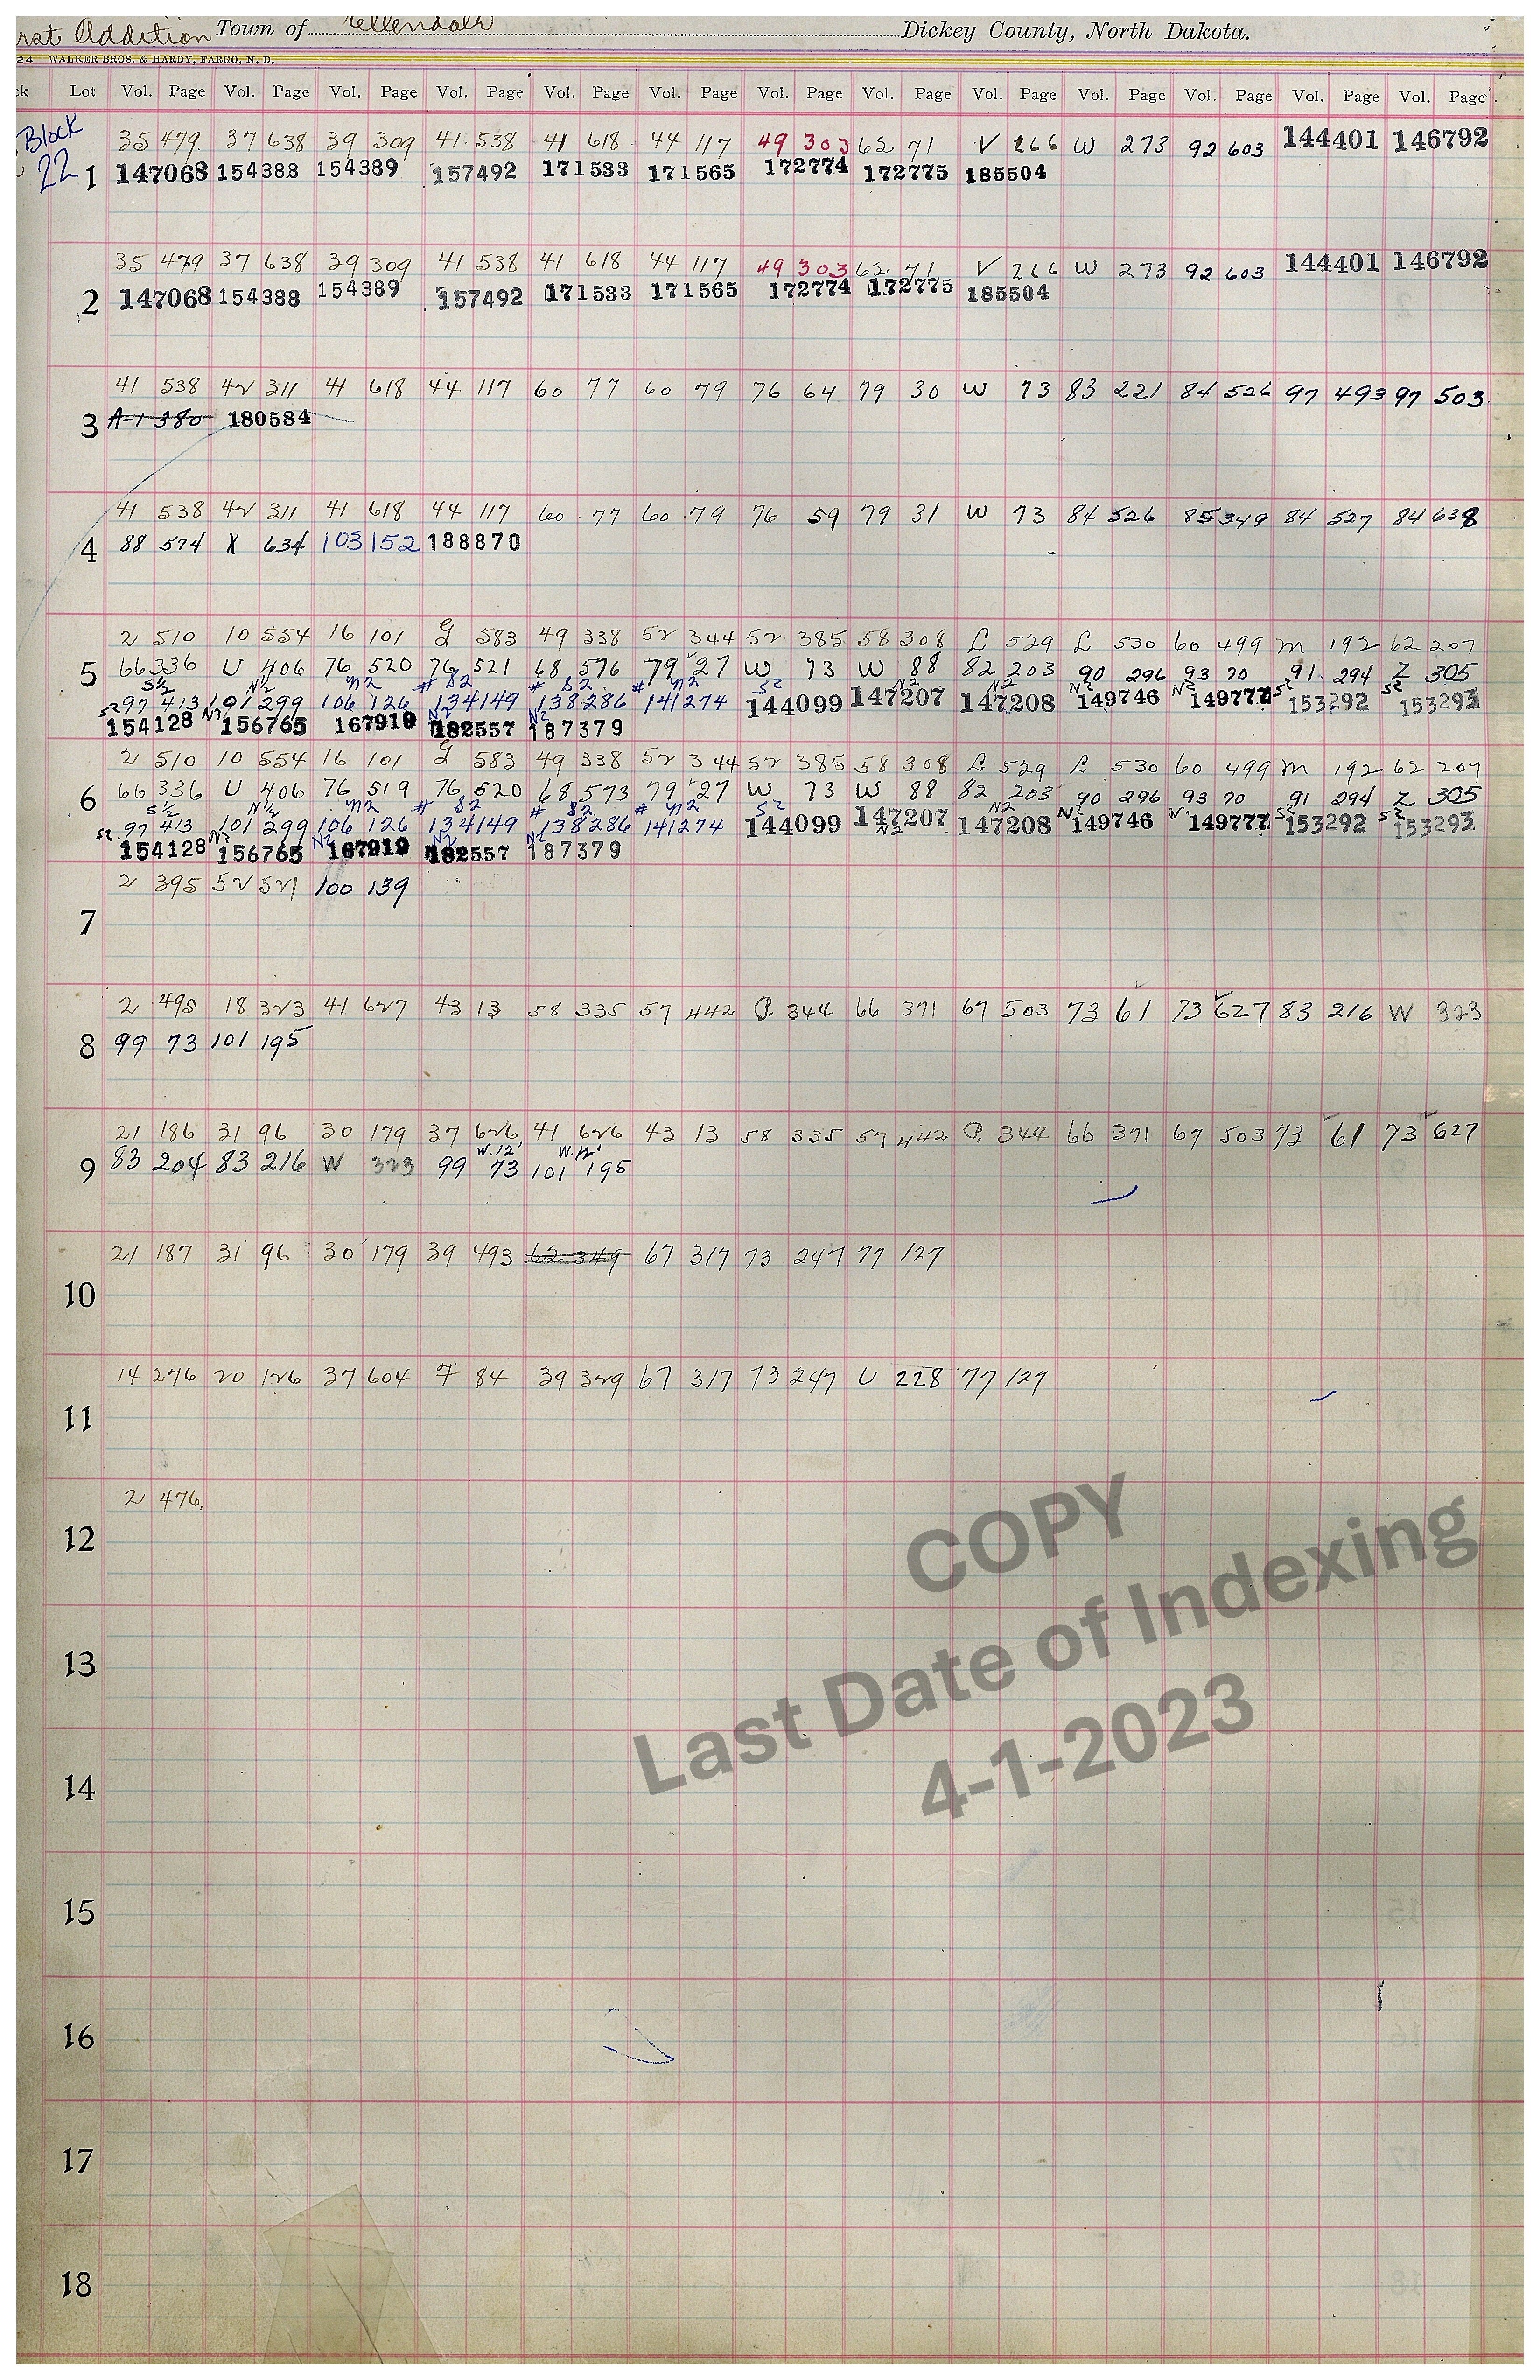 rst Addition Town of Ellendale Dickey County, North Dakota.
24 WALKER BROS. & HARDY, FARGO, N. D.
ck Lot Vol. Page Vol. Page Vol. Page Vol. Page Vol. Page Vol. Page Vol. Page Vol. Page Vol. Page Vol. Page Vol. Page Vol. Page Vol. Page
Block 35 479 37 638 39 309 41 538 41 618 44 117 49 303 62 71 V 266 W 273 92 603 144401 146792
22 1 147068 154388 154389 157492 171533 171565 172774 172775 185504
35 479 37 638 39 309 41 538 41 618 44 117 49 303 62 71 V 266 W 273 92 603 144401 146792
2 147068 154388 154389 157492 171533 171565 172774 172775 185504
41 538 42 311 41 618 44 117 60 77 60 79 76 64 79 30 W 73 83 221 84 526 97 493 97 503
3 A-1 380 180584
41 538 42 311 41 618 44 117 60 77 60 79 76 59 79 31 W 73 84 526 85 349 84 527 84 638
4 88 574 X 634 103 152 188870
2 510 10 554 16 101 G 583 49 338 52 344 52 385 58 308 L 529 L 530 60 499 M 192 62 207
5 66 336 U 406 76 520 76 521 68 576 79 27 W 73 W 88 82 203 90 296 93 70 91 294 Z 305
S½ N½ N2 # S2 # S2 # N2 S2 N2 N2 N2 N2 S2 S2
S2 97 413 101 299 106 126 134149 138286 141274 144099 147207 147208 149746 149777 153292 153293
154128 N2 156765 167919 N2 182557 N2 187379
2 510 10 554 16 101 G 583 49 338 52 344 52 385 58 308 L 529 L 530 60 499 M 192 62 207
6 66 336 U 406 76 519 76 520 68 573 79 27 W 73 W 88 82 203 90 296 93 70 91 294 Z 305
S½ N½ N2 # S2 # S2 # N2 S2 N2 N2 N2 N S2 S2
S2 97 413 101 299 106 126 134149 138286 141274 144099 147207 147208 149746 149777 153292 153293
154128 N2 156765 N2 167919 N2 182557 N2 187379
2 395 52 521 100 139
7
2 495 18 323 41 627 43 13 58 335 57 442 P. 344 66 371 67 503 73 61 73 627 83 216 W 323
8 99 73 101 195
21 186 31 96 30 179 37 626 41 626 43 13 58 335 57 442 P. 344 66 371 67 503 73 61 73 627
W. 12' W. 12'
9 83 204 83 216 W 323 99 73 101 195
21 187 31 96 30 179 39 493 62 349 67 317 73 247 77 127
10
14 276 20 126 37 604 7 84 39 329 67 317 73 247 U 228 77 127
11
2 476.
12
COPY
Last Date of Indexing
4-1-2023
13
14
15
16
17
18